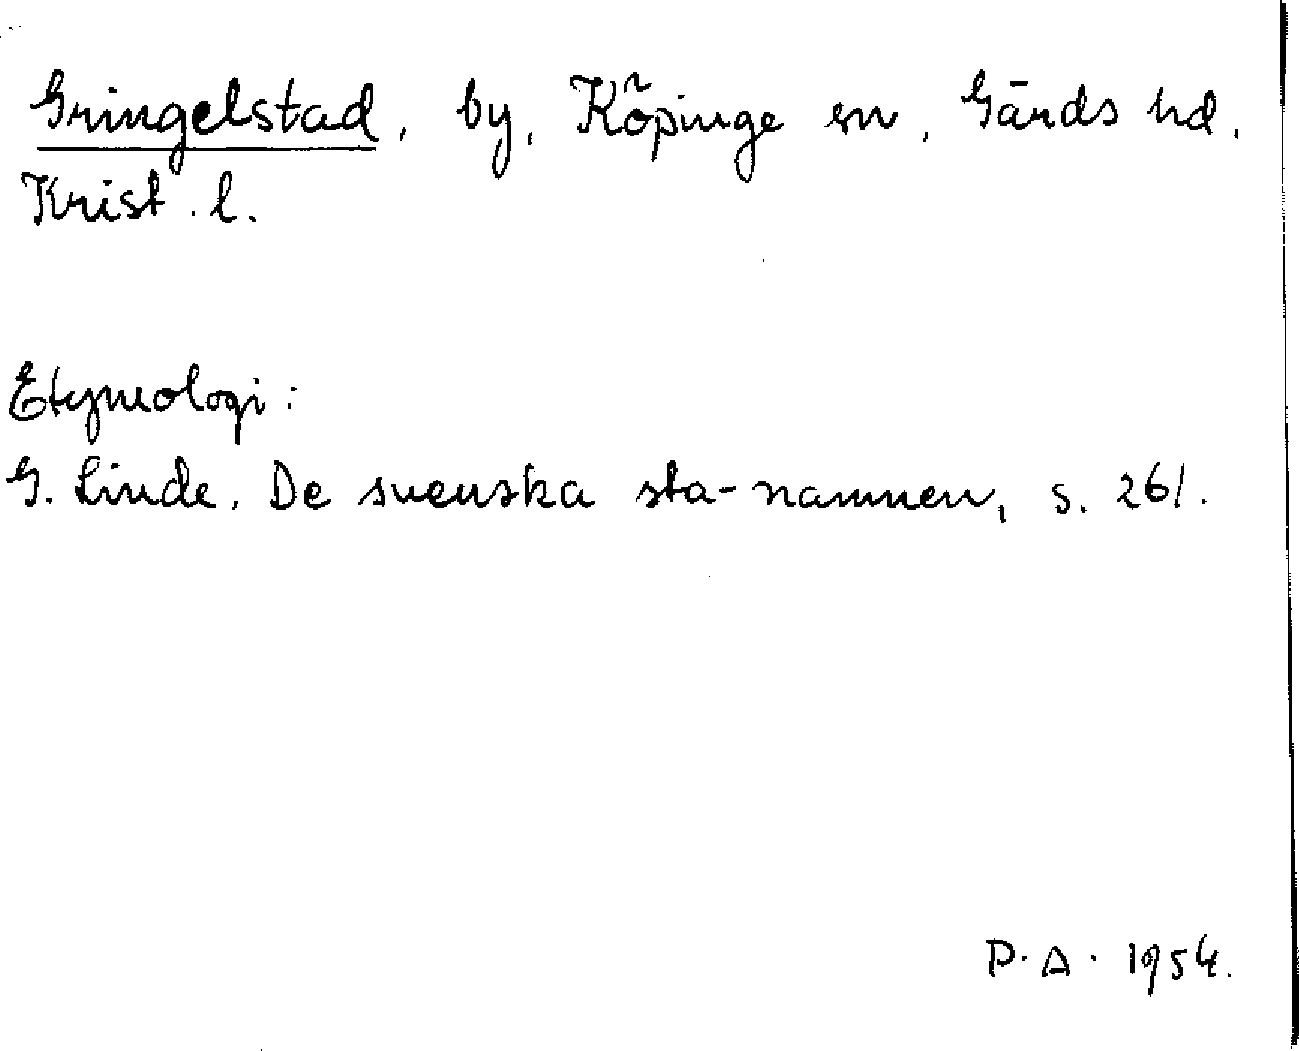 Gringelstad, by, Köpinge sn, Gärds hd,
Krist. l.
Etymologi:
G. Linde, De svenska sta-namnen, s. 261.
P. A. 1954.